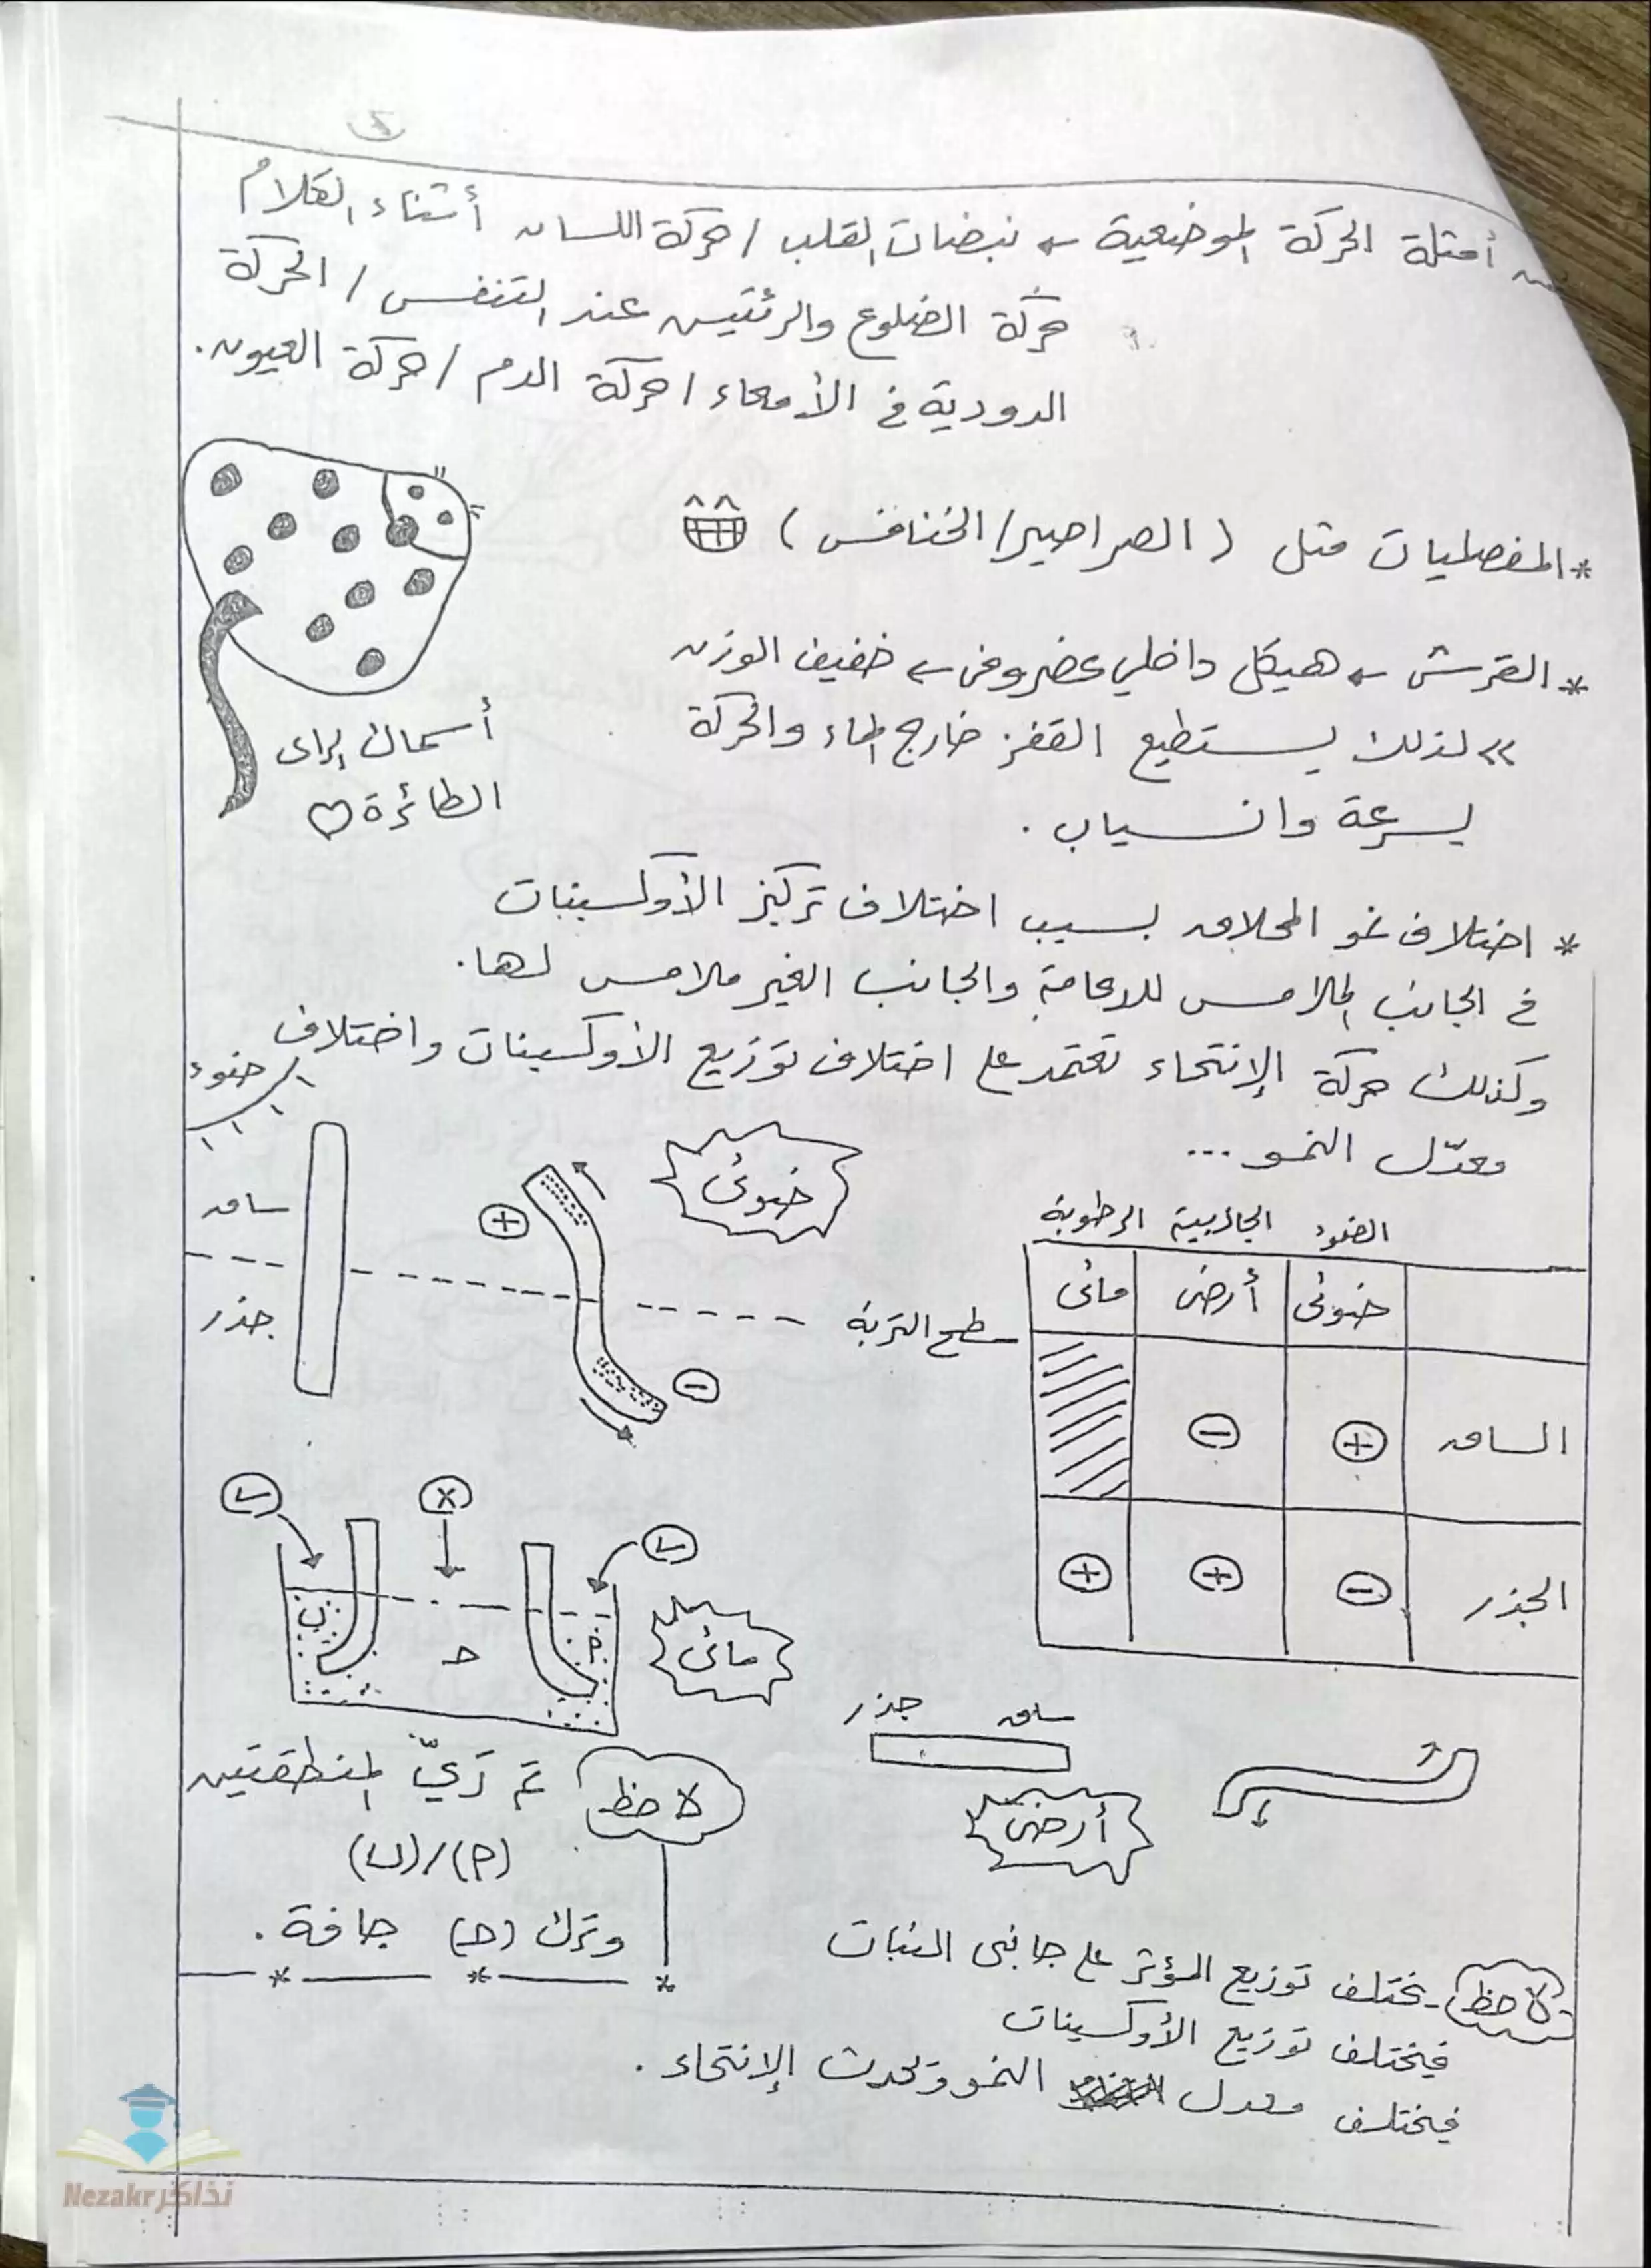 ٢
من أمثلة الحركة الموضعية ← نبضات القلب / حركة اللسان أثناء الكلام
حركة الضلوع والرئتين عند التنفس / الحركة
الدودية في الأمعاء / حركة الدم / حركة العيون.
* المفصليات مثل (الصراصير/الخنافس)
* القرش ← هيكل داخلي غضروفى ← خفيف الوزن
>> لذلك يستطيع القفز خارج الماء والحركة
بسرعة وانسياب.
أسماك الراى
الطائرة ♡
* اختلاف نمو المحلاق بسبب اختلاف تركيز الأوكسينات
في الجانب الملامس للدعامة والجانب الغير ملامس لها.
وكذلك حركة الإنتحاء تعتمد على اختلاف توزيع الأوكسينات واختلاف
معدّل النمو ...
ضوء
ساق
جذر
+
-
ضوئى
سطح التربة
الضوء الجاذبية الرطوبة
ضوئى أرضى مائى
الساق + -
الجذر - + +
✓ x ✓
ب ج م
مائى
ساق جذر
أرضى
لاحظ تم رَيّ المنطقتين
(م)/(ب)
وترك (ج) جافة.
لاحظ - يختلف توزيع المؤثر على جانبى النبات
فيختلف توزيع الأوكسينات
فيختلف معدل النمو وتحدث الإنتحاء.
نذاكر Nezakr